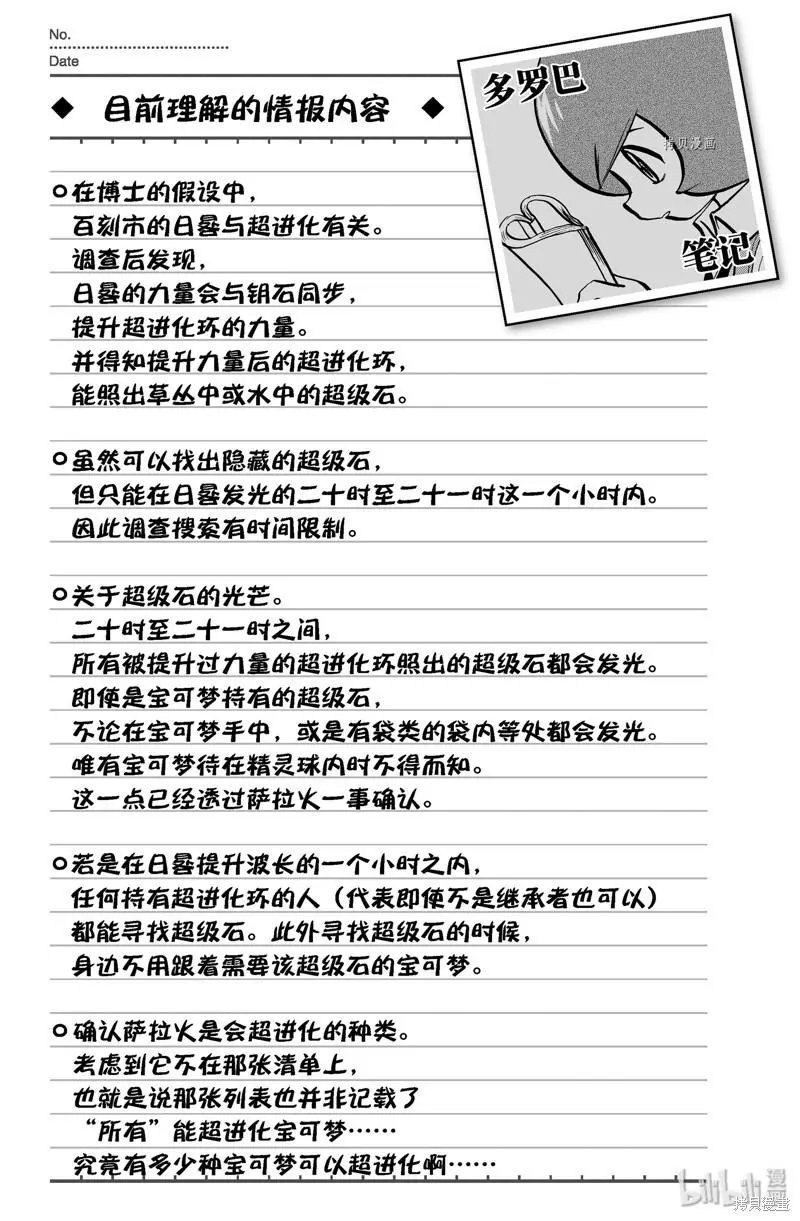 No.
Date
◆ 目前理解的情报内容 ◆
多罗巴
拷贝漫画
笔记
○在博士的假设中，
百刻市的日晷与超进化有关。
调查后发现，
日晷的力量会与钥石同步，
提升超进化环的力量。
并得知提升力量后的超进化环，
能照出草丛中或水中的超级石。
○虽然可以找出隐藏的超级石，
但只能在日晷发光的二十时至二十一时这一个小时内。
因此调查搜索有时间限制。
○关于超级石的光芒。
二十时至二十一时之间，
所有被提升过力量的超进化环照出的超级石都会发光。
即使是宝可梦持有的超级石，
不论在宝可梦手中，或是有袋类的袋内等处都会发光。
唯有宝可梦待在精灵球内时不得而知。
这一点已经透过萨拉火一事确认。
○若是在日晷提升波长的一个小时之内，
任何持有超进化环的人（代表即使不是继承者也可以）
都能寻找超级石。此外寻找超级石的时候，
身边不用跟着需要该超级石的宝可梦。
○确认萨拉火是会超进化的种类。
考虑到它不在那张清单上，
也就是说那张列表也并非记载了
“所有”能超进化宝可梦……
究竟有多少种宝可梦可以超进化啊……
bilibili漫画
拷贝漫畫